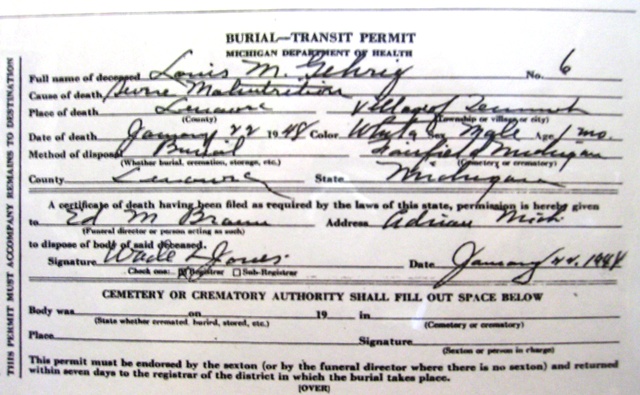 BURIAL—TRANSIT PERMIT
MICHIGAN DEPARTMENT OF HEALTH
Full name of deceased Louis M. Gehrig No. 6
Cause of death Severe Malnutrition
Place of death Lenawee Village of
(County) (Township or village or city)
Date of death January 22 1948 Color White Sex Male Age 1 mo.
Method of disposal Burial Fairfield Michigan
(Whether burial, cremation, storage, etc.) (Cemetery or crematory)
County Lenawee State Michigan
A certificate of death having been filed as required by the laws of this state, permission is hereby given
to Ed M Braun Address Adrian Mich
(Funeral director or person acting as such)
to dispose of body of said deceased.
Signature Wade D Jones Date January 22, 1948
Check one: Registrar Sub-Registrar
CEMETERY OR CREMATORY AUTHORITY SHALL FILL OUT SPACE BELOW
Body was on 19 in
(State whether cremated, buried, stored, etc.) (Cemetery or crematory)
Place Signature
(Sexton or person in charge)
This permit must be endorsed by the sexton (or by the funeral director where there is no sexton) and returned
within seven days to the registrar of the district in which the burial takes place.
[OVER]
THIS PERMIT MUST ACCOMPANY REMAINS TO DESTINATION